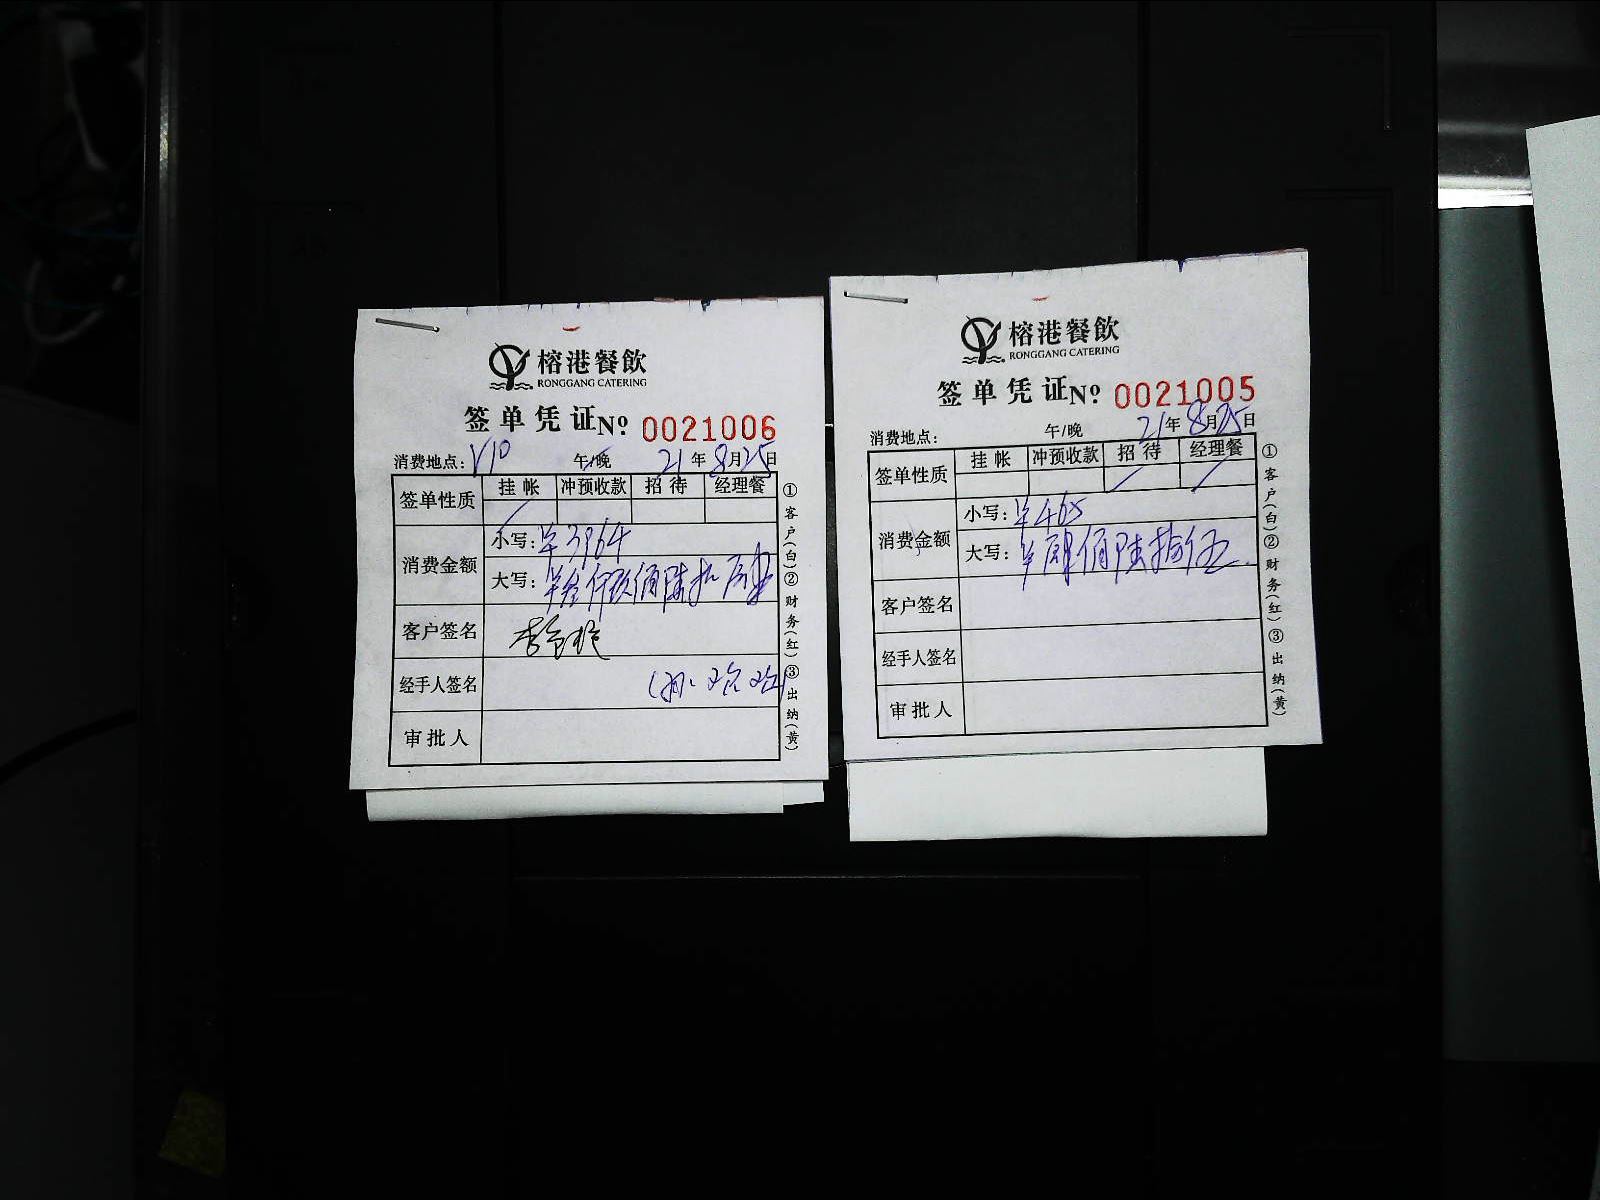 榕港餐飲
RONGGANG CATERING
签单凭证 Nº 0021006
消费地点: V10 午/晚 21年8月25日
签单性质 挂帐 冲预收款 招待 经理餐
消费金额
小写: ¥3964
大写: ¥叁仟玖佰陆拾肆
客户签名
经手人签名
审批人
①客户(白)②财务(红)③出纳(黄)
榕港餐飲
RONGGANG CATERING
签单凭证 Nº 0021005
消费地点: 午/晚 21年8月25日
签单性质 挂帐 冲预收款 招待 经理餐
消费金额
小写: ¥465
大写: ¥肆佰陆拾伍
客户签名
经手人签名
审批人
①客户(白)②财务(红)③出纳(黄)